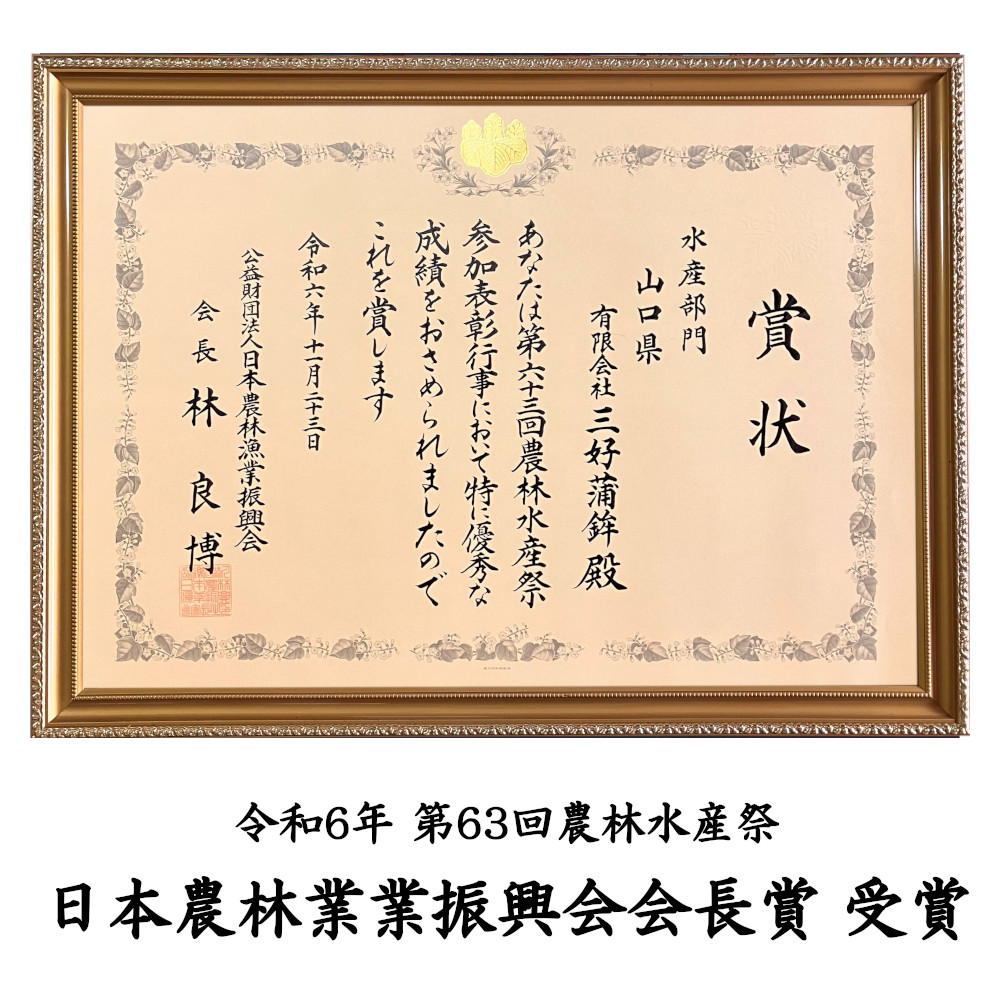 賞状
水産部門
山口県
有限会社 三好蒲鉾 殿
あなたは第六十三回農林水産祭
参加表彰行事において特に優秀な
成績をおさめられましたので
これを賞します
令和六年十一月二十三日
公益財団法人日本農林漁業振興会
会長 林 良博
令和6年 第63回農林水産祭
日本農林業業振興会会長賞 受賞